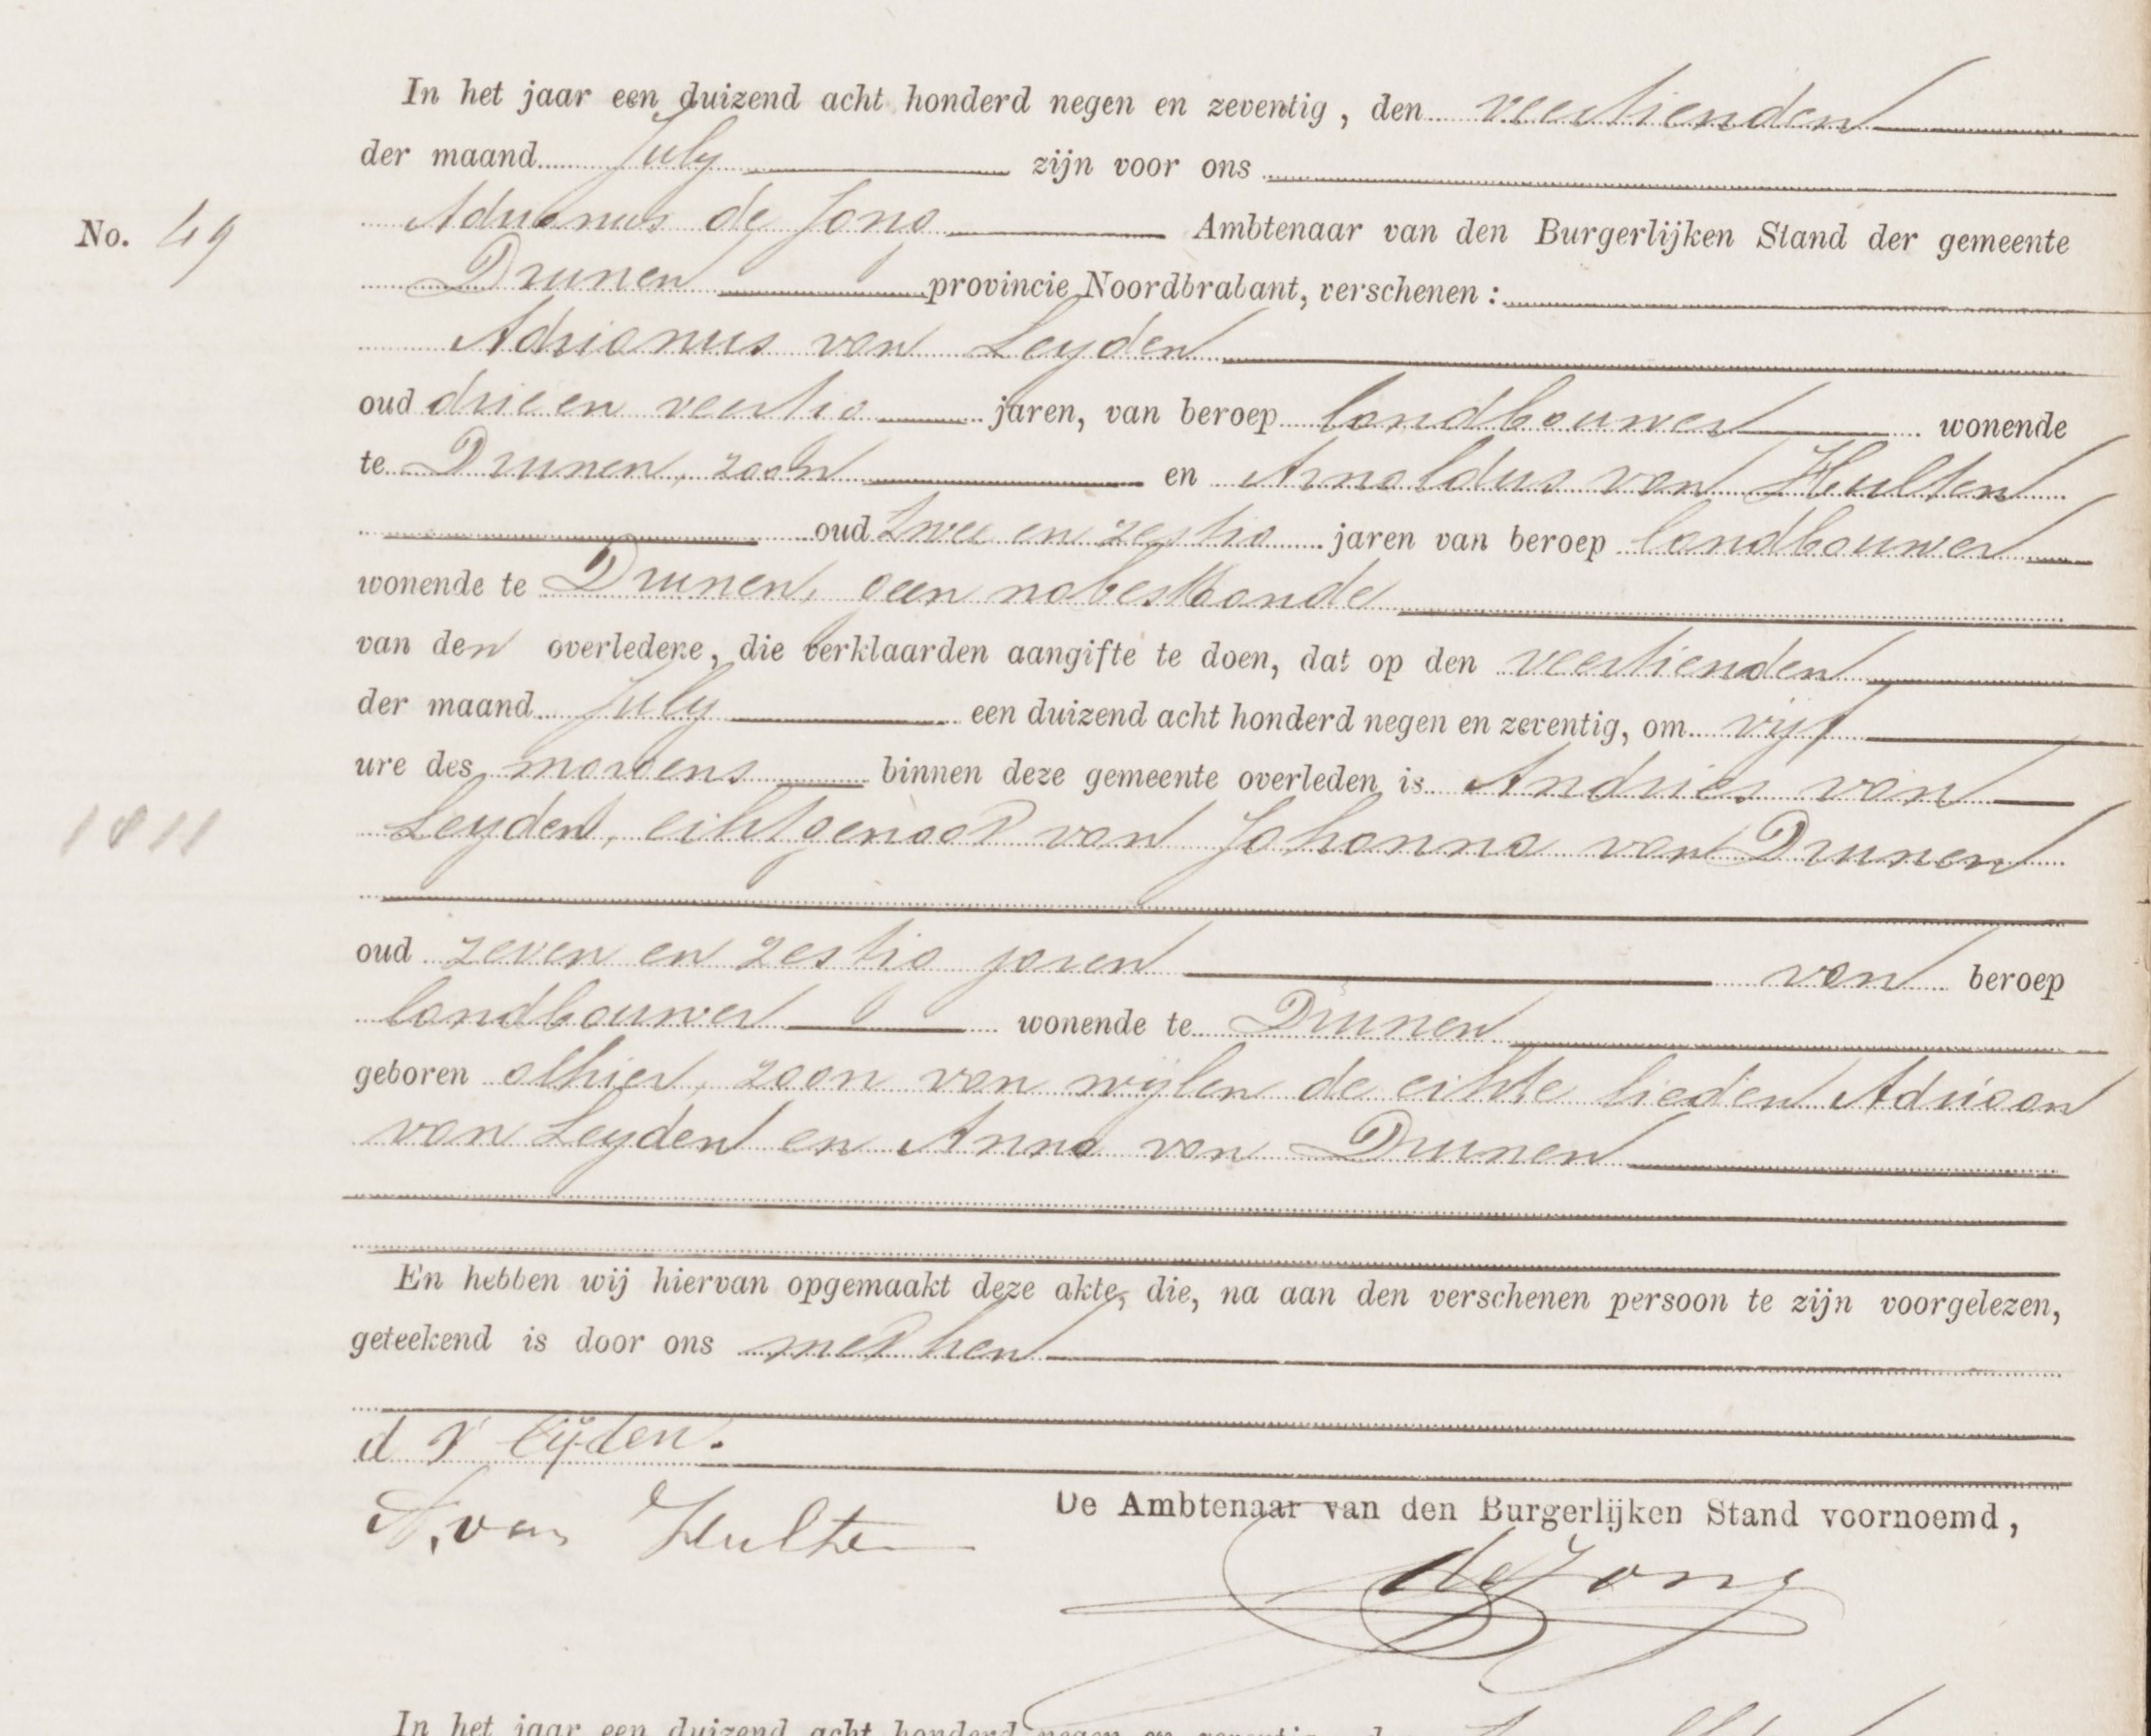 In het jaar een duizend acht honderd negen en zeventig, den veertienden
der maand July zijn voor ons
No. 49
Adrianus de Jong Ambtenaar van den Burgerlijken Stand der gemeente
Drunen provincie Noordbrabant, verschenen :
Adrianus van Leyden
oud drie en veertig jaren, van beroep landbouwer wonende
te Drunen, zoon en Arnoldus van Hulten
oud twee en zestig jaren van beroep landbouwer
wonende te Drunen, geen nabestaande
van den overledene, die verklaarden aangifte te doen, dat op den veertienden
der maand July een duizend acht honderd negen en zeventig, om vijf
ure des morgens binnen deze gemeente overleden is Andries van
1811
Leyden, echtgenoot van Johanna van Drunen
oud zeven en zestig jaren van beroep
landbouwer wonende te Drunen
geboren alhier, zoon van wijlen de echte lieden Adriaan
van Leyden en Anna van Drunen
En hebben wij hiervan opgemaakt deze akte, die, na aan den verschenen persoon te zijn voorgelezen,
geteekend is door ons met hen
d v Lijden.
A. van Hulten
De Ambtenaar van den Burgerlijken Stand voornoemd,
de Jong
In het jaar een duizend acht honderd negen en zeventig, den